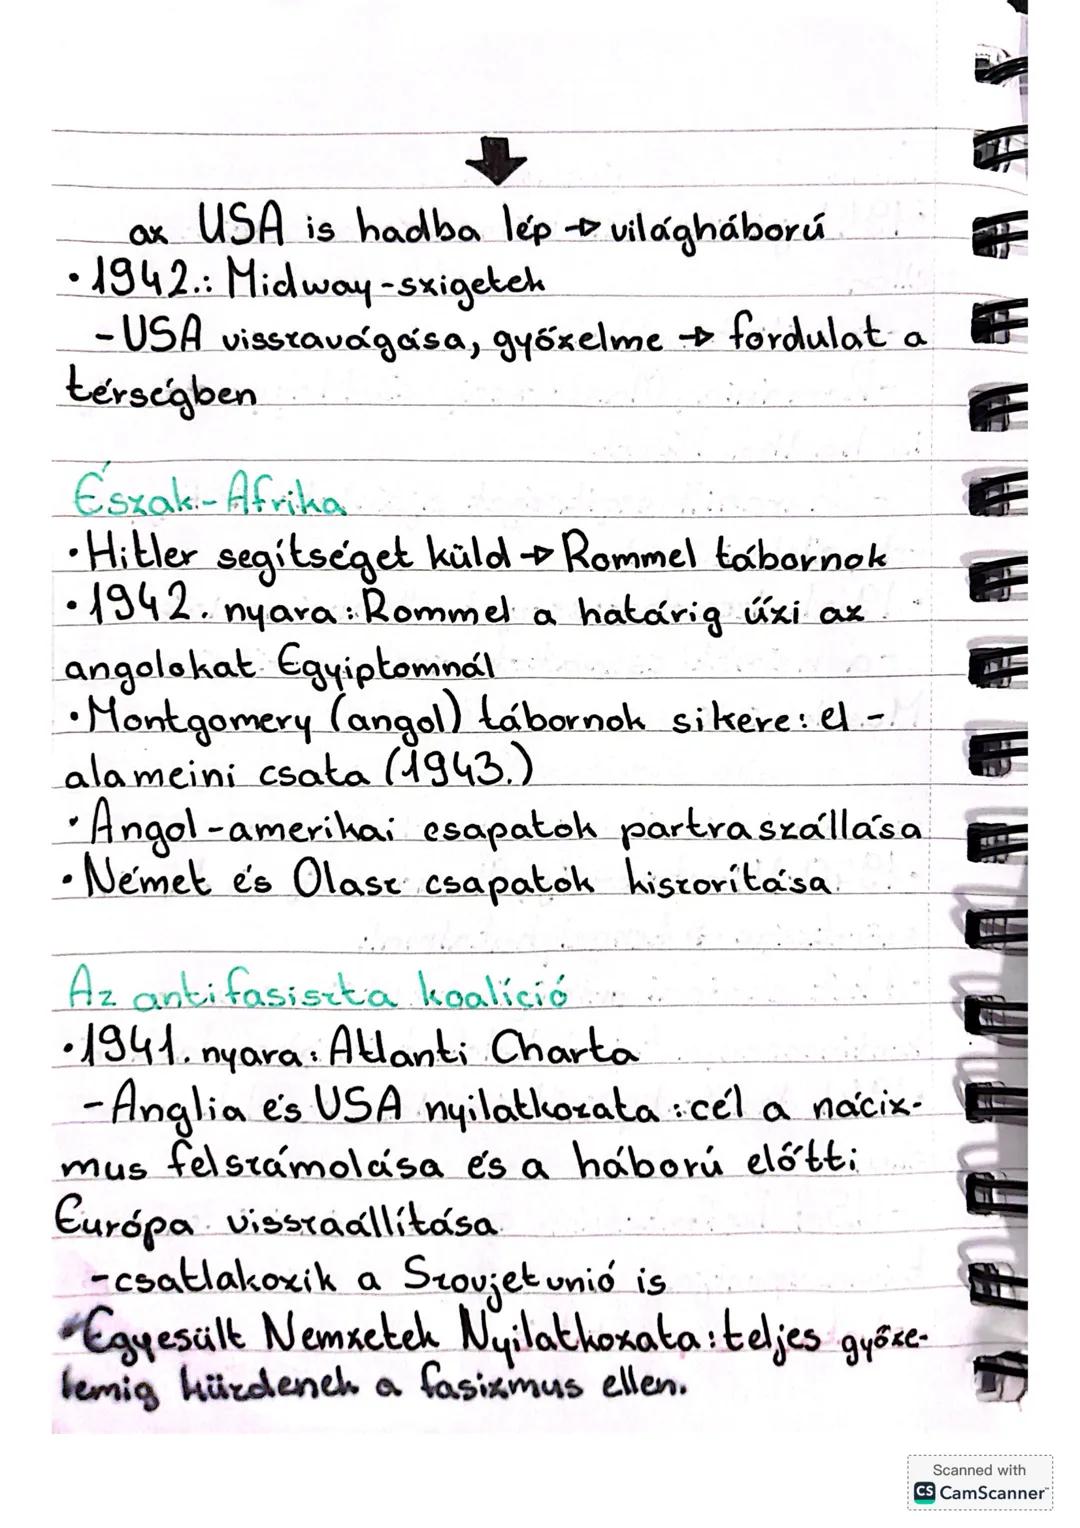 az USA is hadba lép → világháború
• 1942.: Midway-szigetek
- USA visszavágása, győzelme → fordulat a
térségben
Észak-Afrika
• Hitler segítséget küld → Rommel tábornok
• 1942. nyara: Rommel a határig űzi az
angolokat Egyiptomnál
• Montgomery (angol) tábornok sikere: el-
alameini csata (1943.)
• Angol-amerikai csapatok partraszállása
• Német és Olasz csapatok kiszorítása
Az antifasiszta koalíció
• 1941. nyara: Atlanti Charta
- Anglia és USA nyilatkozata: cél a náciz-
mus felszámolása és a háború előtti
Európa visszaállítása
- csatlakozik a Szovjetunió is
• Egyesült Nemzetek Nyilatkozata: teljes győze-
lemig küzdenek a fasizmus ellen.
Scanned with
CS CamScanner™